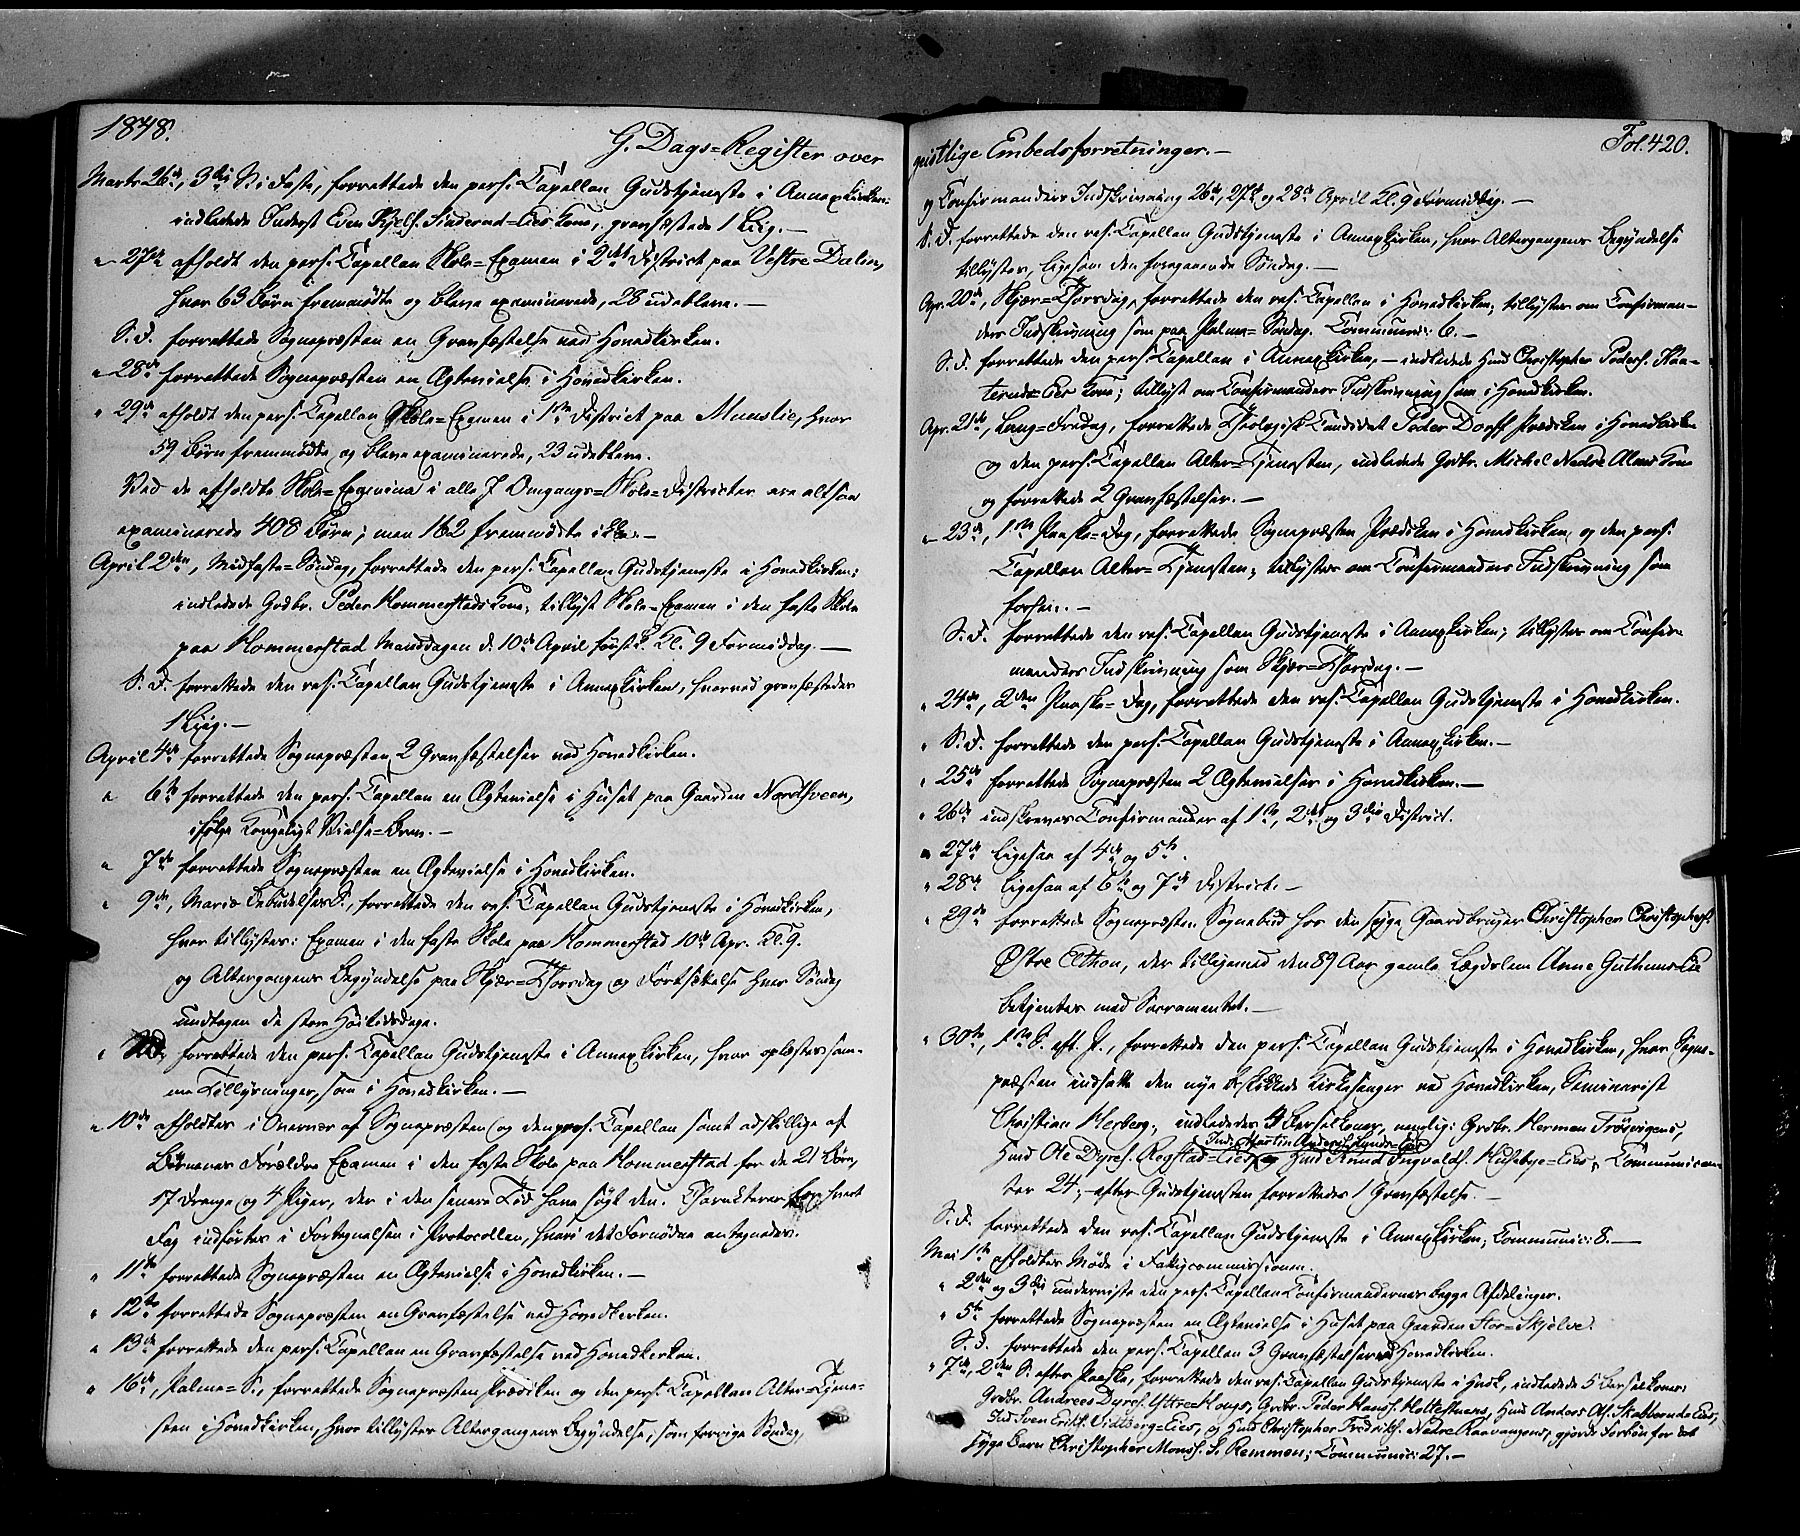 1848.
G. Dags=Register over
Marts 26de, 3die S. i Faste, forrettede den pers. Capellan Gudstjeneste i Annexkirken;
indledede Inderst Even Kjels. Kone, gravfæstede 1 Liig.—
" 27de afholdt den pers. Capellan Skole=Examen i 2det District paa Vestre Dalin,
hvor 63 Børn fremmødte og bleve examinerede, 28 udebleve.—
S. D. forrettede Sognepræsten en Gravfæstelse ved Hovedkirken.
" 28de forrettede Sognepræsten en Ægtevielse i Hovedkirken.
" 29de afholdt den pers. Capellan Skole=Examen i 1ste District paa Munslie, hvor
59 Børn fremmødte og bleve examinerede, 23 udebleve.
Ved de afholdte Skole=Examina i alle 7 Omgangs=Skole=Districter ere altsaa
examinerede 408 Børn; men 162 fremmødte ikke.—
April 2den, Midfaste=Søndag, forrettede den pers. Capellan Gudstjeneste i Hovedkirken;
indledede Grdbr. Peder Hommerstads Kone; tillyst Skole=Examen i den faste Skole
paa Hommerstad Manddagen d. 10de April først. Kl. 9 Formiddag.—
S. D. forrettede den res. Capellan Gudstjeneste i Annexkirken, hvorved gravfæstedes
1 Liig.—
April 4de forrettede Sognepræsten 2 Gravfæstelser ved Hovedkirken.
" 6te forrettede den pers. Capellan en Ægtevielse i Huset paa Gaarden Nordsveen,
ifølge Kongeligt Vielse=Brev.—
" 7de forrettede Sognepræsten en Ægtevielse i Hovedkirken.
" 9de, Mariæ Bebudelses D., forrettede den res. Capellan Gudstjeneste i Hovedkirken,
hvor tillystes: Examen i den faste Skole paa Hommerstad 10de Apr. Kl. 9.
og Altergangens Begyndelse paa Skjær=Thorsdag og Fortsættelse hver Søndag
undtagen de store Høitidsdage.
" forrettede den pers. Capellan Gudstjeneste i Annexkirken, hvor oplæstes sam-
me Tillysninger, som i Hovedkirken.—
" 10de afholdtes i Overvær af Sognepræsten og den pers. Capellan samt adskillige af
Børnenes Forældre Examen i den faste Skole paa Hommerstad for de 21 Børn,
17 Drenge og 4 Piger, der i den senere Tid have søgt den. Charakterer for hvert
Fag indførtes i Fortegnelsen i Protocollen, hvori det Fornødne antegnedes.
" 11te forrettede Sognepræsten en Ægtevielse i Hovedkirken.—
" 12te forrettede Sognepræsten en Gravfæstelse ved Hovedkirken.
" 13de forrettede den pers. Capellan en Gravfæstelse ved Hovedkirken.
" 16de, Palme=S., forrettede Sognepræsten Prædiken og den pers. Capellan Alter=Tjene-
sten i Hovedkirken, hvor tillystes Altergangens Begyndelse, som forrige Søndag,
geistlige Embedsforretninger.—
Fol. 420.
og Confirmanders Indskrivning 26de, 27de og 28de April Kl. 9 Formiddag.—
S. D. forrettede den res. Capellan Gudstjeneste i Annexkirken, hvor Altergangens Begyndelse
tillystes, ligesom den foregaaende Søndag.—
Apr. 20de, Skjær=Thorsdag, forrettede den res. Capellan i Hovedkirken; tillystes om Confirman-
ders Indskrivning som paa Palme=Søndag. Communic: 6.—
S. D. forrettede den pers. Capellan i Annexkirken,— indledede Huusmd Christopher Peders. Kaa-
terud=Eies Kone; tillyst om Confirmanders Indskrivning som i Hovedkirken.
Apr. 21de, Lang=Fredag, forrettede Theologisk Candidat Peder Dorff Prædiken i Hovedkirken
og den pers. Capellan Alter=Tjenesten, indledede Grdbr. Michel Nedre Alms Kone
og forrettede 2 Gravfæstelser.—
" 23de, 1ste Paaske=Dag, forrettede Sognepræsten Prædiken i Hovedkirken, og den pers.
Capellan Alter=Tjenesten; tillystes om Confirmanders Indskrivning som
forhen.—
S. D. forrettede den res. Capellan Gudstjeneste i Annexkirken; tillystes om Confir-
manders Indskrivning som Skjær=Thorsdag.—
" 24de, 2den Paaske=Dag, forrettede den res. Capellan Gudstjeneste i Hovedkirken.
" S. D. forrettede den pers. Capellan Gudstjeneste i Annexkirken.—
" 25de forrettede Sognepræsten 2 Ægtevielser i Hovedkirken.—
" 26de indskreves Confirmander af 1ste, 2det og 3die District.
" 27de ligesaa af 4de og 5te.
" 28de ligesaa af 6te og 7de District.—
" 29de forrettede Sognepræsten Sognebud hos den syge Gaardbruger Christopher Christophers.
Østre Elthon, der tilligemed den 89 Aar gamle Lægdslem Anne Guthuus Eie
betjentes med Sacramentet.—
" 30te, 1ste S. eft. P., forrettede den pers. Capellan Gudstjeneste i Hovedkirken, hvor Sogne-
præsten indsatte den nye beskikkede Kirkesanger ved Hovedkirken, Seminarist
Christian Herberg; indledede 4 Barselkoner, nemlig: Grdbr. Herman Trøsvigens,
Ind. Martin Anders. Lunds=Eie
Huusmd Ole Dyres. Regstad=Eies og Huusmd Knud Ingvalds. Husebye=Eies; Communican-
ter 24;— efter Gudstjenesten forrettedes 1 Gravfæstelse.—
S. D. forrettede den res. Capellan Gudstjeneste i Annexkirken; Communic: 8.—
Mai 1ste afholdtes Møde i Fattigcommissionen.
" 2den og 3die underviste den pers. Capellan Confirmandernes begge Afdelinger.
" 5te forrettede Sognepræsten en Ægtevielse i Huset paa Gaarden Stor=Skjelve.
S. D. forrettede den pers. Capellan 3 Gravfæstelser ved Hovedkirken.
" 7de, 2den S. efter Paaske, forrettede den res. Capellan Gudstjeneste i Hvdk, indledede 5 Barselkoner:
Grdbr. Andreas Dyres. Yttre=Hougs, Grdbr. Peder Hans. Holtesnæs, Huusmd Anders Ol. Stabberud=Eies,
Ind. Sven Erikss. Vidberg=Eies, og Huusmd Christopher Fredriks. Nedre Raavangens, gjorde Forbøn for det
syge Barn Christopher Mons. S. Remmen; Communic: 27.—